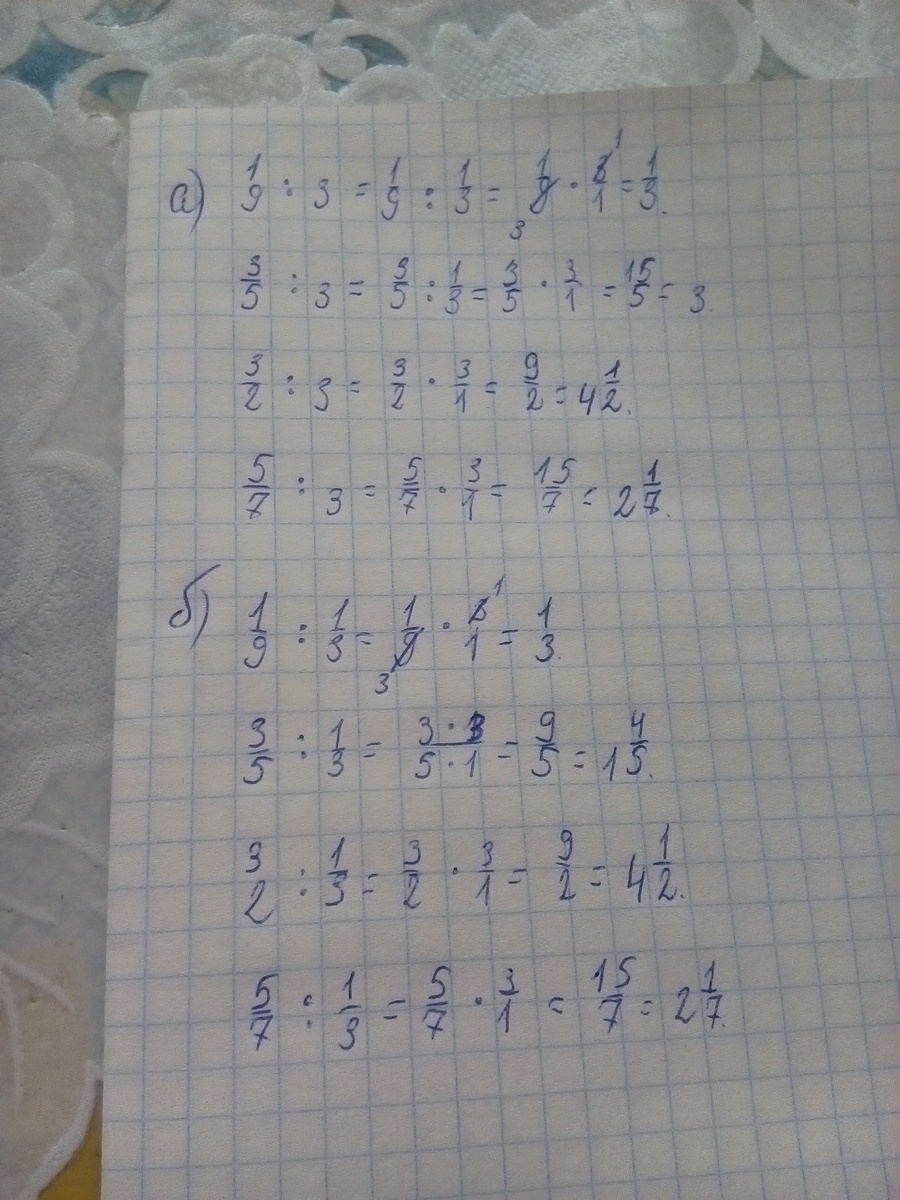 а) 1/9 : 3 = 1/9 : 1/3 = 1/9 3 · 3/1 1 = 1/3.
3/5 : 3 = 3/5 : 1/3 = 3/5 · 3/1 = 15/5 = 3.
3/2 : 3 = 3/2 · 3/1 = 9/2 = 4 1/2.
5/7 : 3 = 5/7 · 3/1 = 15/7 = 2 1/7.
б) 1/9 : 1/3 = 1/9 3 · 3/1 1 = 1/3.
3/5 : 1/3 = 3·3/5·1 = 9/5 = 1 4/5.
3/2 : 1/3 = 3/2 · 3/1 = 9/2 = 4 1/2.
5/7 : 1/3 = 5/7 · 3/1 = 15/7 = 2 1/7.